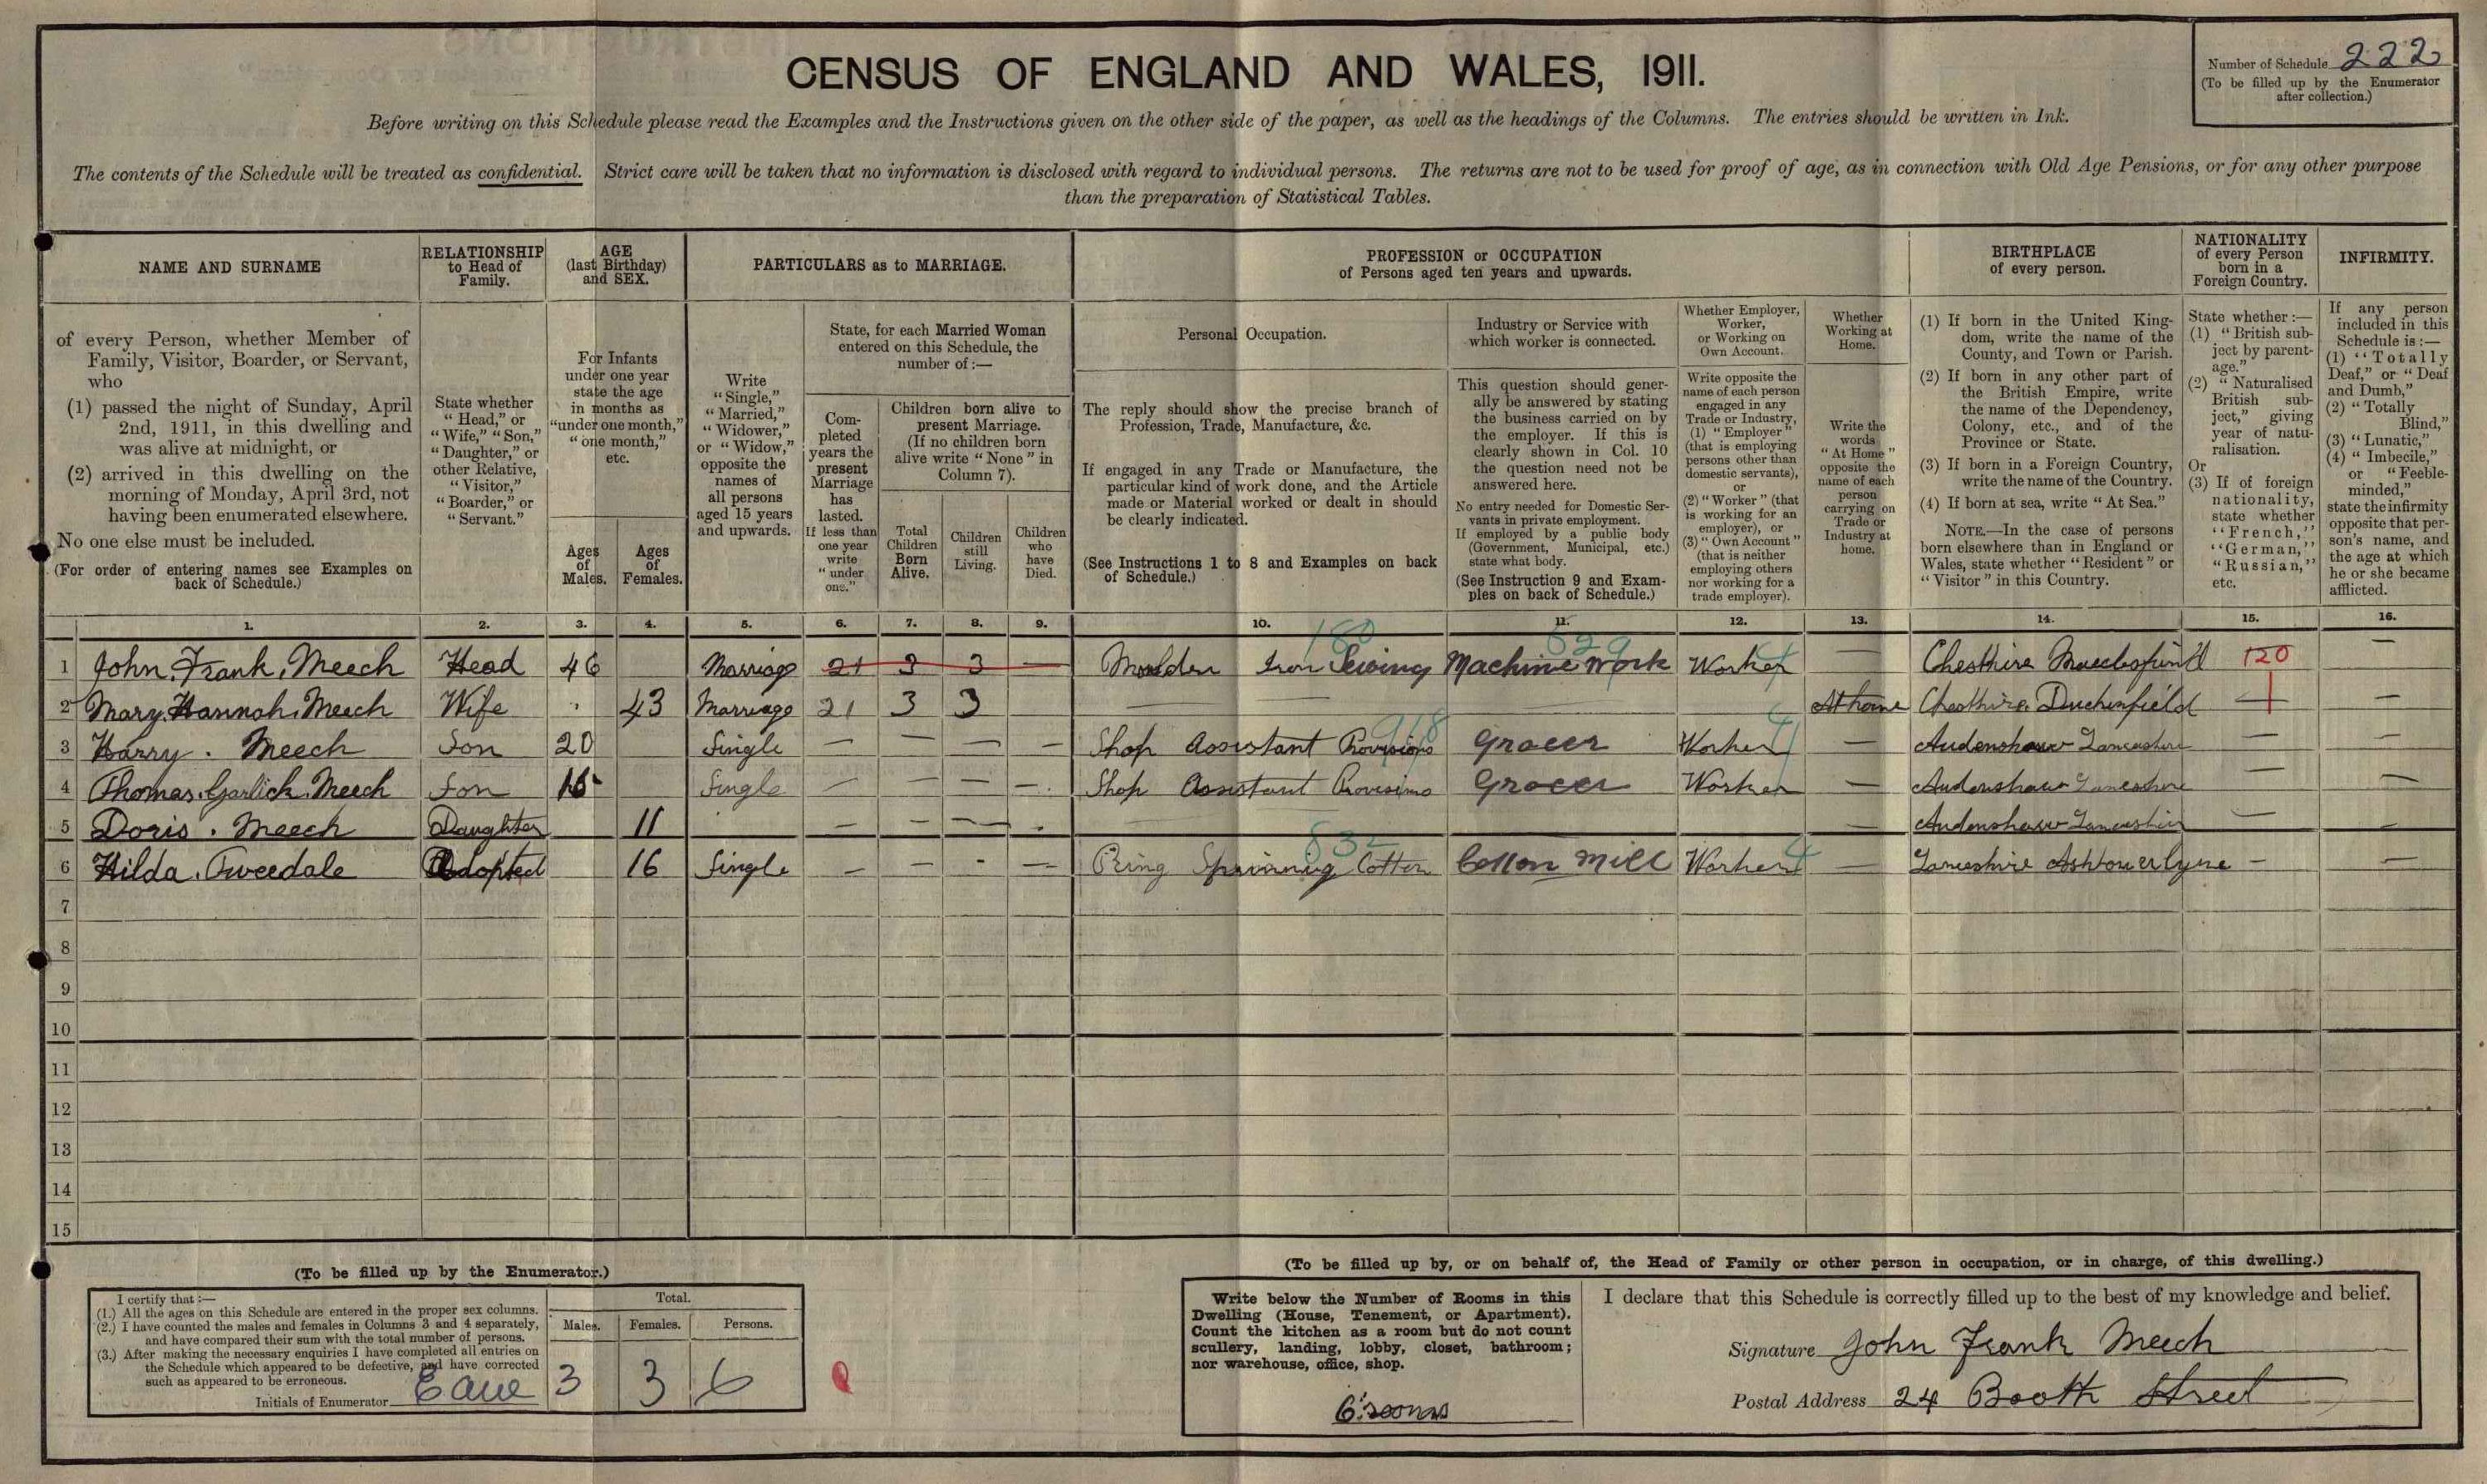 CENSUS OF ENGLAND AND WALES, 1911.
Number of Schedule 222
(To be filled up by the Enumerator
after collection.)
Before writing on this Schedule please read the Examples and the Instructions given on the other side of the paper, as well as the headings of the Columns. The entries should be written in Ink.
The contents of the Schedule will be treated as confidential. Strict care will be taken that no information is disclosed with regard to individual persons. The returns are not to be used for proof of age, as in connection with Old Age Pensions, or for any other purpose
than the preparation of Statistical Tables.
NAME AND SURNAME
of every Person, whether Member of
Family, Visitor, Boarder, or Servant,
who
(1) passed the night of Sunday, April
2nd, 1911, in this dwelling and
was alive at midnight, or
(2) arrived in this dwelling on the
morning of Monday, April 3rd, not
having been enumerated elsewhere.
No one else must be included.
(For order of entering names see Examples on
back of Schedule.)
RELATIONSHIP
to Head of
Family.
State whether
"Head," or
"Wife," "Son,"
"Daughter," or
other Relative,
"Visitor,"
"Boarder," or
"Servant."
AGE
(last Birthday)
and SEX.
For Infants
under one year
state the age
in months as
"under one month,"
"one month,"
etc.
Ages
of
Males.
Ages
of
Females.
PARTICULARS as to MARRIAGE.
Write
"Single,"
"Married,"
"Widower,"
or "Widow,"
opposite the
names of
all persons
aged 15 years
and upwards.
State, for each Married Woman
entered on this Schedule, the
number of:—
Com-
pleted
years the
present
Marriage
has
lasted.
If less than
one year
write
"under
one."
Children born alive to
present Marriage.
(If no children born
alive write "None" in
Column 7).
Total
Children
Born
Alive.
Children
still
Living.
Children
who
have
Died.
PROFESSION or OCCUPATION
of Persons aged ten years and upwards.
Personal Occupation.
The reply should show the precise branch of
Profession, Trade, Manufacture, &c.
If engaged in any Trade or Manufacture, the
particular kind of work done, and the Article
made or Material worked or dealt in should
be clearly indicated.
(See Instructions 1 to 8 and Examples on back
of Schedule.)
Industry or Service with
which worker is connected.
This question should gener-
ally be answered by stating
the business carried on by
the employer. If this is
clearly shown in Col. 10
the question need not be
answered here.
No entry needed for Domestic Ser-
vants in private employment.
If employed by a public body
(Government, Municipal, etc.)
state what body.
(See Instruction 9 and Exam-
ples on back of Schedule.)
Whether Employer,
Worker,
or Working on
Own Account.
Write opposite the
name of each person
engaged in any
Trade or Industry,
(1) "Employer"
(that is employing
persons other than
domestic servants),
or
(2) "Worker" (that
is working for an
employer), or
(3) "Own Account"
(that is neither
employing others
nor working for a
trade employer).
Whether
Working at
Home.
Write the
words
"At Home"
opposite the
name of each
person
carrying on
Trade or
Industry at
home.
BIRTHPLACE
of every person.
(1) If born in the United King-
dom, write the name of the
County, and Town or Parish.
(2) If born in any other part of
the British Empire, write
the name of the Dependency,
Colony, etc., and of the
Province or State.
(3) If born in a Foreign Country,
write the name of the Country.
(4) If born at sea, write "At Sea."
NOTE.—In the case of persons
born elsewhere than in England or
Wales, state whether "Resident" or
"Visitor" in this Country.
NATIONALITY
of every Person
born in a
Foreign Country.
State whether:—
(1) "British sub-
ject by parent-
age."
(2) "Naturalised
British sub-
ject," giving
year of natu-
ralisation.
Or
(3) If of foreign
nationality,
state whether
"French,"
"German,"
"Russian,"
etc.
INFIRMITY.
If any person
included in this
Schedule is:—
(1) "Totally
Deaf," or "Deaf
and Dumb,"
(2) "Totally
Blind,"
(3) "Lunatic,"
(4) "Imbecile,"
or "Feeble-
minded,"
state the infirmity
opposite that per-
son's name, and
the age at which
he or she became
afflicted.
1. 2. 3. 4. 5. 6. 7. 8. 9. 10. 11. 12. 13. 14. 15. 16.
180 529
1 John Frank Meech Head 46 Marriage 21 3 3 — Moulder Iron Sewing Machine Work Worker — Cheshire 120 —
2 Mary Hannah Meech Wife 43 Marriage 21 3 3 — — At home Cheshire Duchinfield — —
3 Harry. Meech Son 20 Single — — — — Shop Assistant Provisions Grocer Worker — Audenshaw Lancashire — —
4 Thomas Garlick Meech Son Single — — — — Shop Assistant Provisions Grocer Worker — Audenshaw Lancashire — —
5 Doris. Meech Daughter 11 — — — — Audenshaw Lancashire — —
832
6 Hilda. Tweedale Adopted 16 Single — — - — Ring Spinning Cotton Cotton Mill Worker — Lancashire — —
7
8
9
10
11
12
13
14
15
(To be filled up by the Enumerator.)
I certify that:—
(1.) All the ages on this Schedule are entered in the proper sex columns.
(2.) I have counted the males and females in Columns 3 and 4 separately,
and have compared their sum with the total number of persons.
(3.) After making the necessary enquiries I have completed all entries on
the Schedule which appeared to be defective, and have corrected
such as appeared to be erroneous.
Initials of Enumerator
Total.
Males. Females. Persons.
3 3 6
(To be filled up by, or on behalf of, the Head of Family or other person in occupation, or in charge, of this dwelling.)
Write below the Number of Rooms in this
Dwelling (House, Tenement, or Apartment).
Count the kitchen as a room but do not count
scullery, landing, lobby, closet, bathroom;
nor warehouse, office, shop.
6 rooms
I declare that this Schedule is correctly filled up to the best of my knowledge and belief.
Signature John Frank Meech
Postal Address 24 Booth Street